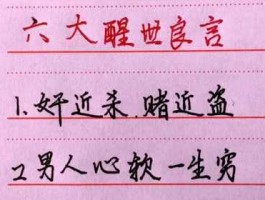 六大醒世良言
1.奸近杀.赌近盗
2男人心软一生穷